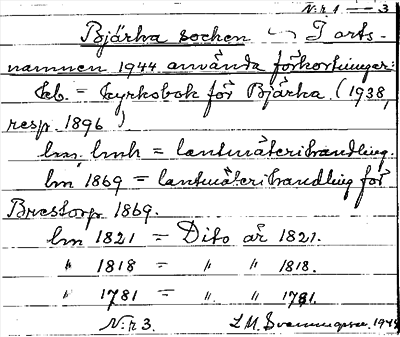 N:r 1 — 3
Bjärka socken ~ I orts-
namnen 1944 använda förkortningar:
kb. = kyrkobok för Bjärka. (1938,
resp. 1896)
lm. lmh = lantmäterihandling.
lm 1869 = lantmäterihandling för
Brestorp 1869.
lm 1821 = Dito år 1821.
" 1818 = " " 1818.
" 1781 = " " 1781.
N:r 3. L. M. Svenungsson 1944